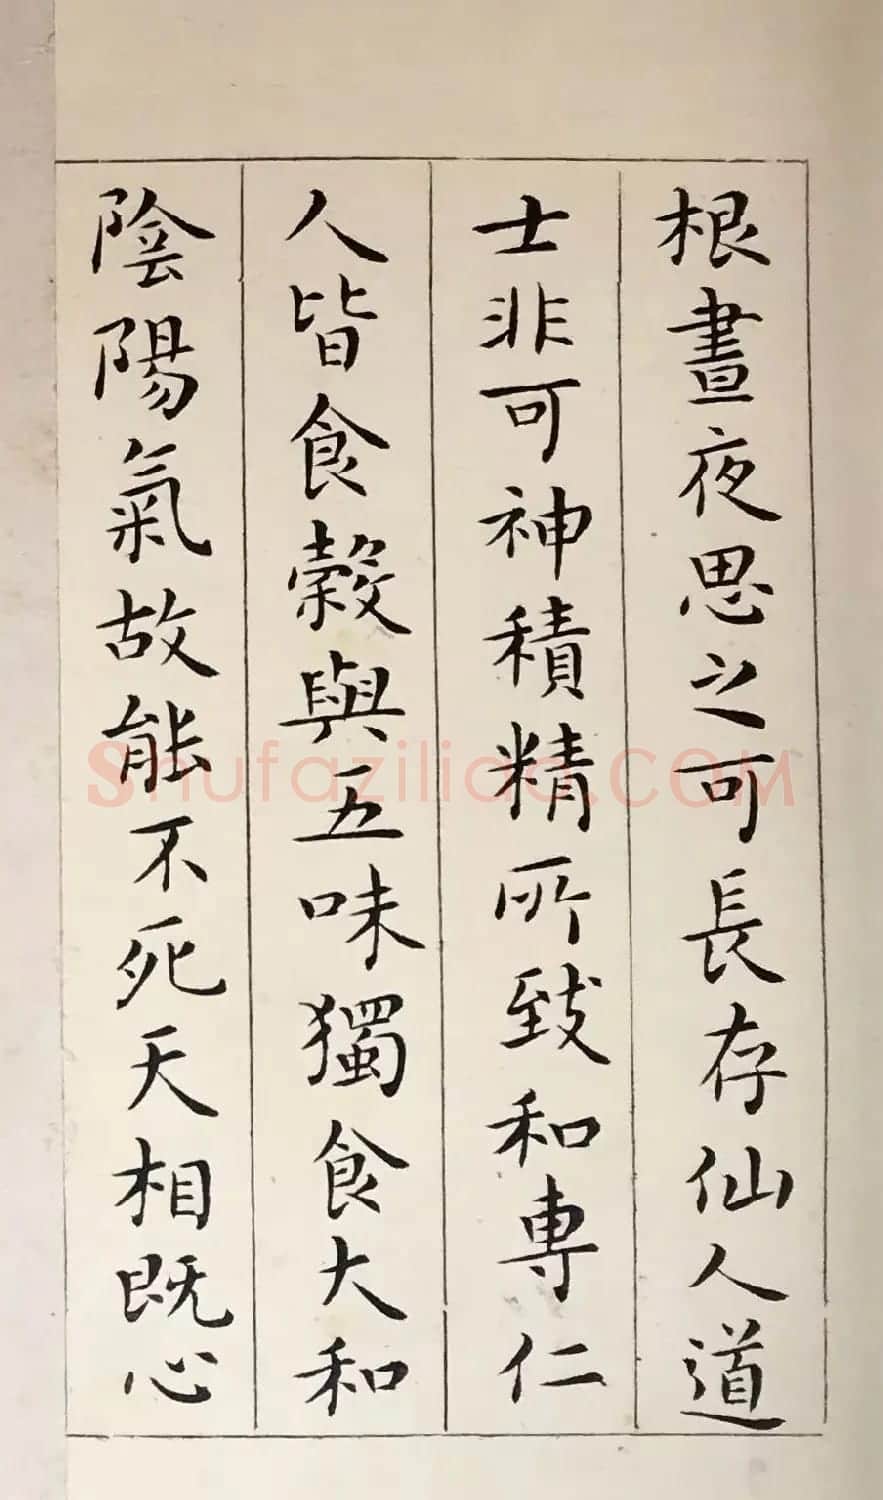 根晝夜思之可長存仙人道
士非可神積精所致和專仁
人皆食穀與五味獨食大和
陰陽氣故能不死天相既心
Shufaziliao.COM